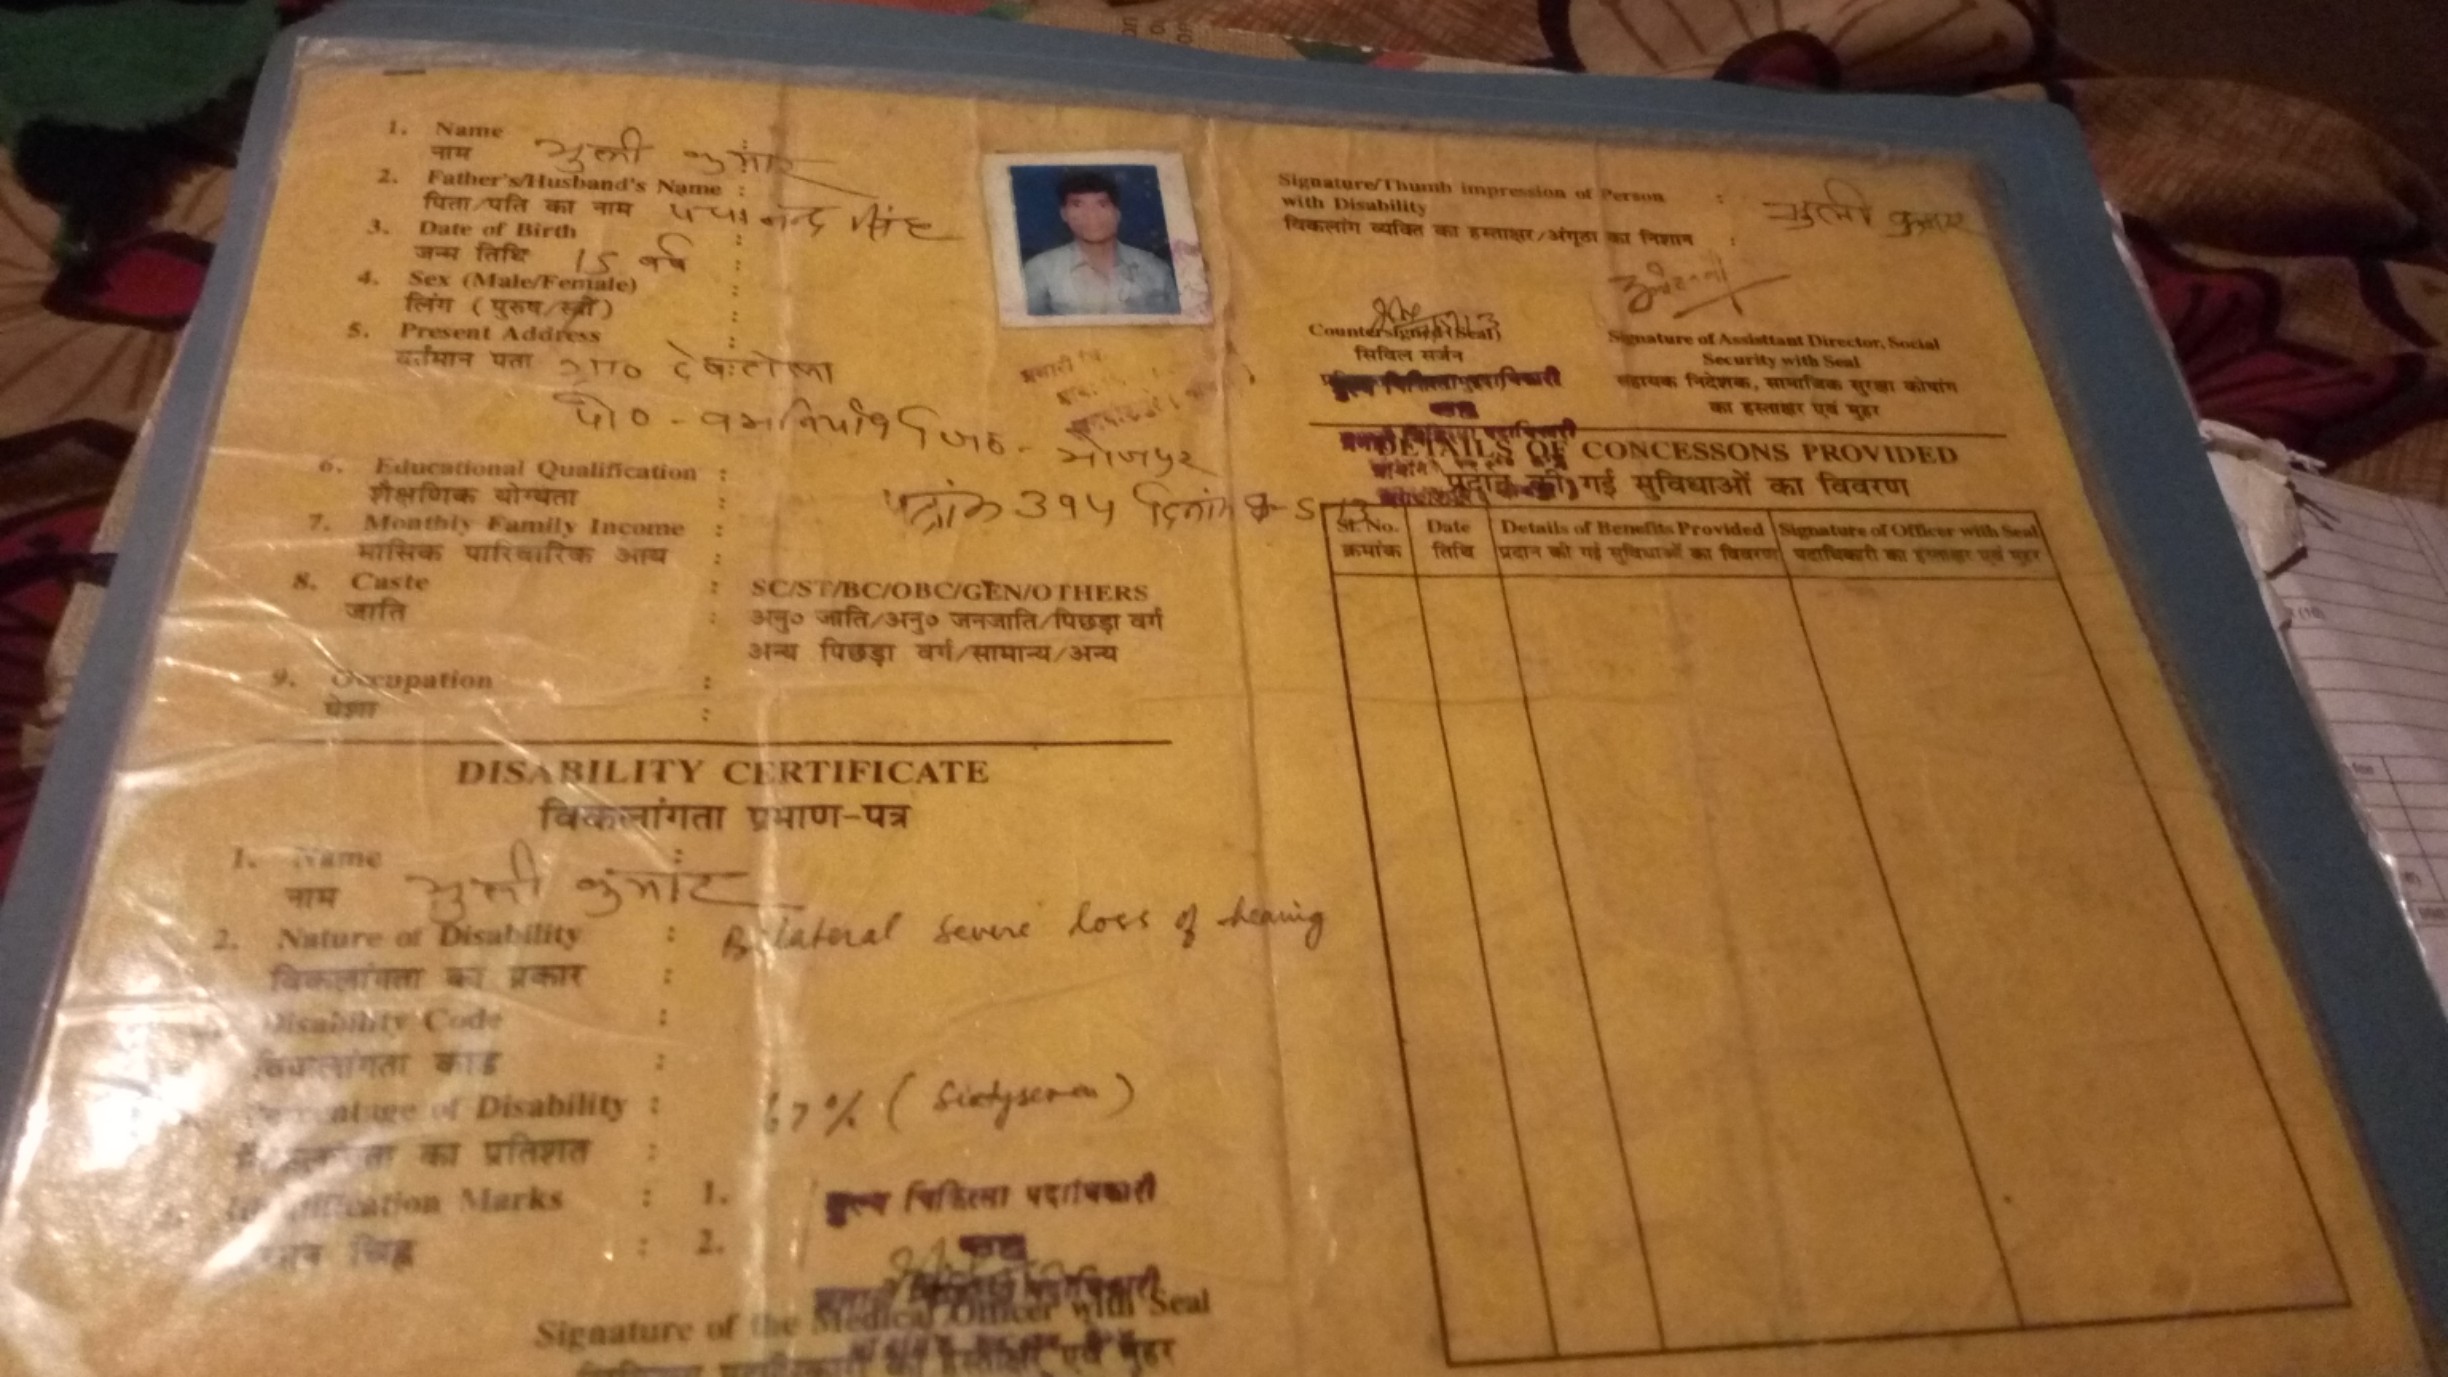 1. Name
नाम मुन्नी कुमार
2. Father's/Husband's Name :
पिता/पति का नाम सिंह
3. Date of Birth :
जन्म तिथि 15 वर्ष :
4. Sex (Male/Female) :
लिंग (पुरुष/स्त्री) :
5. Present Address :
वर्तमान पता ग्रा०
पो० - जि० - भोजपुर
6. Educational Qualification :
शैक्षणिक योग्यता :
पत्रांक 394 दिनांक
7. Monthly Family Income :
मासिक पारिवारिक आय :
8. Caste : SC/ST/BC/OBC/GEN/OTHERS
जाति : अनु० जाति/अनु० जनजाति/पिछड़ा वर्ग
अन्य पिछड़ा वर्ग/सामान्य/अन्य
9. Occupation :
पेशा :
DISABILITY CERTIFICATE
विकलांगता प्रमाण-पत्र
1. Name :
नाम कुमार
2. Nature of Disability : Bilateral severe loss of hearing
विकलांगता का प्रकार :
Disability Code :
विकलांगता कोड :
Percentage of Disability : 67% (Sixtyseven)
विकलांगता का प्रतिशत :
Identification Marks : 1.
पहचान चिह्न : 2.
मुख्य चिकित्सा पदाधिकारी
Signature of the Medical Officer with Seal
का हस्ताक्षर एवं मुहर
Signature/Thumb impression of Person :
with Disability
विकलांग व्यक्ति का हस्ताक्षर/अंगूठा का निशान :
कुमार
Countersigned (Seal)
सिविल सर्जन
Signature of Assisttant Director, Social
Security with Seal
सहायक निदेशक, सामाजिक सुरक्षा कोषांग
का हस्ताक्षर एवं मुहर
DETAILS OF CONCESSONS PROVIDED
प्रदान की गई सुविधाओं का विवरण
Sl. No. Date Details of Benefits Provided Signature of Officer with Seal
क्रमांक तिथि प्रदान की गई सुविधाओं का विवरण पदाधिकारी का हस्ताक्षर एवं मुहर